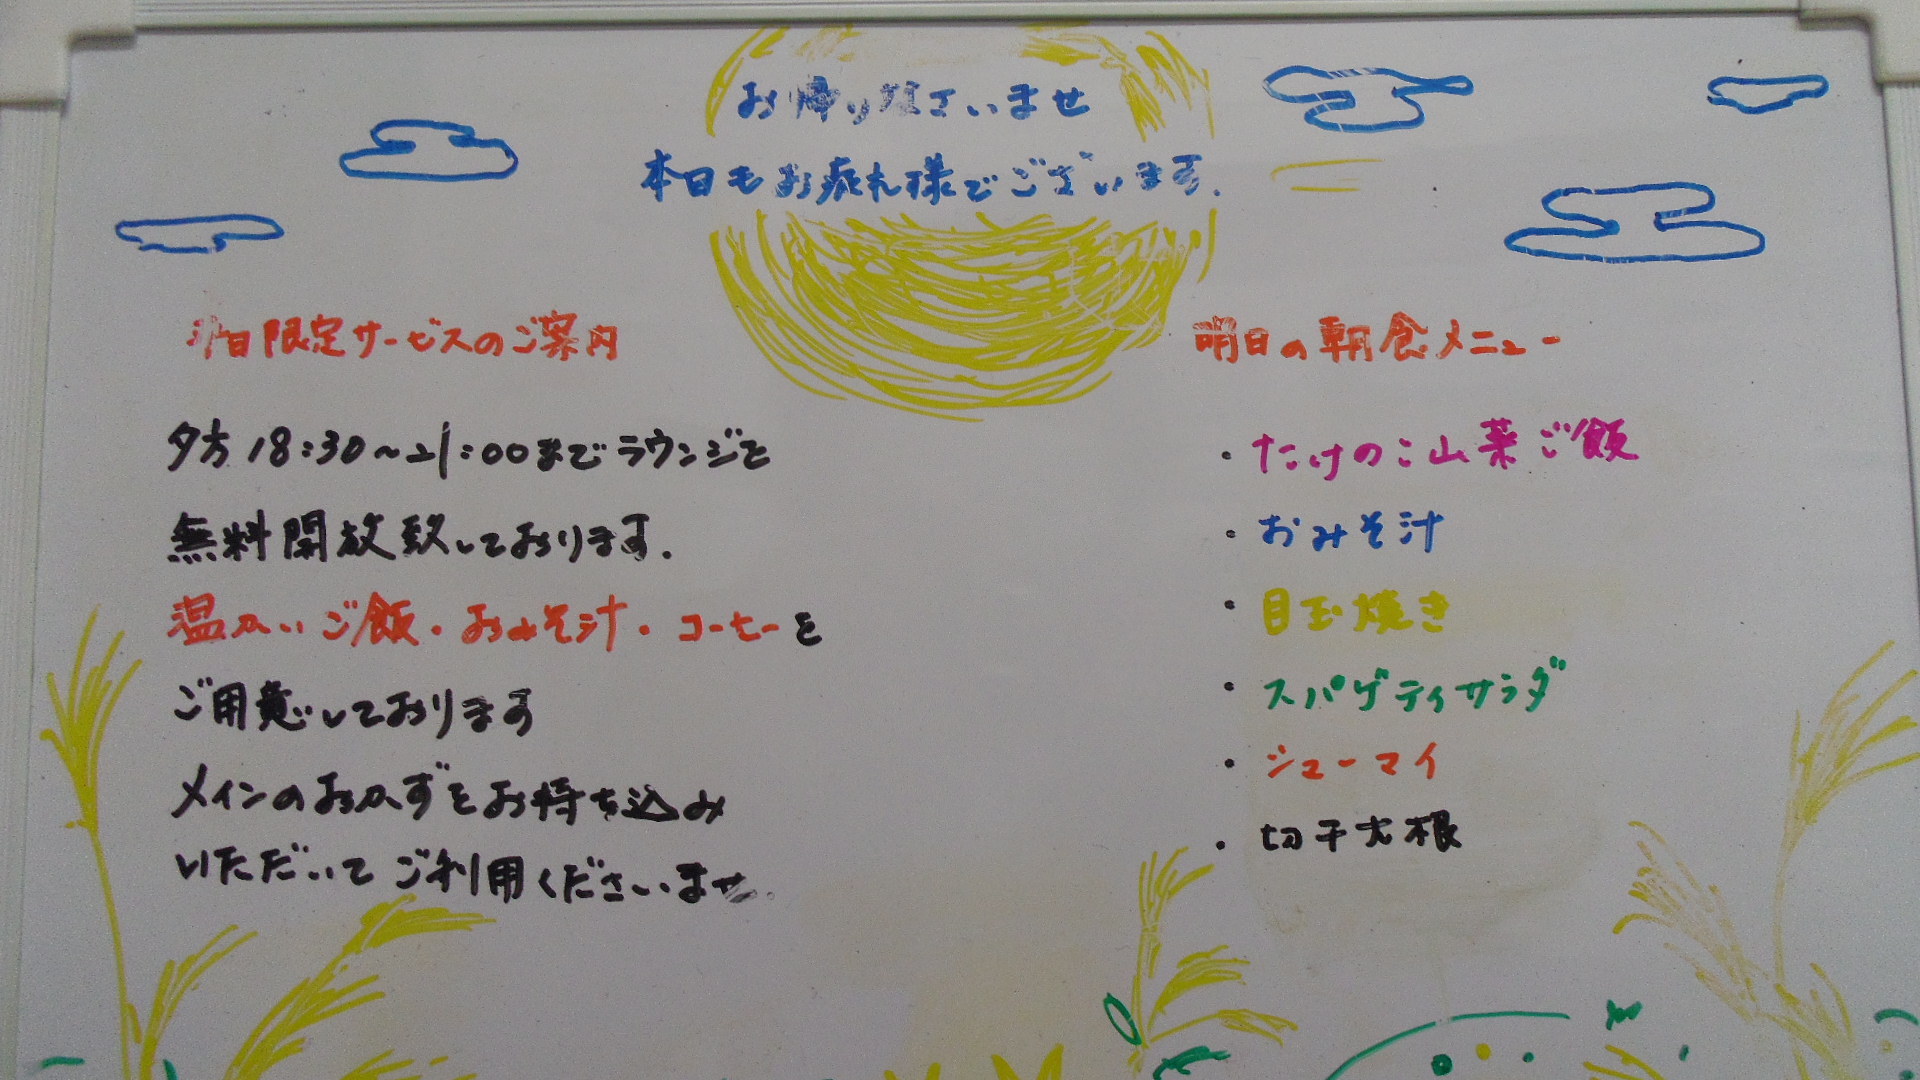 お帰りなさいませ
本日もお疲れ様でございます.
日限定サービスのご案内
夕方18:30~21:00までラウンジを
無料開放致しております.
温かいご飯・おみそ汁・コーヒーを
ご用意しております
メインのおかずをお持ち込み
いただいてご利用くださいませ.
明日の朝食メニュー
・たけのこ山菜ご飯
・おみそ汁
・目玉焼き
・スパゲティサラダ
・シューマイ
・切干大根